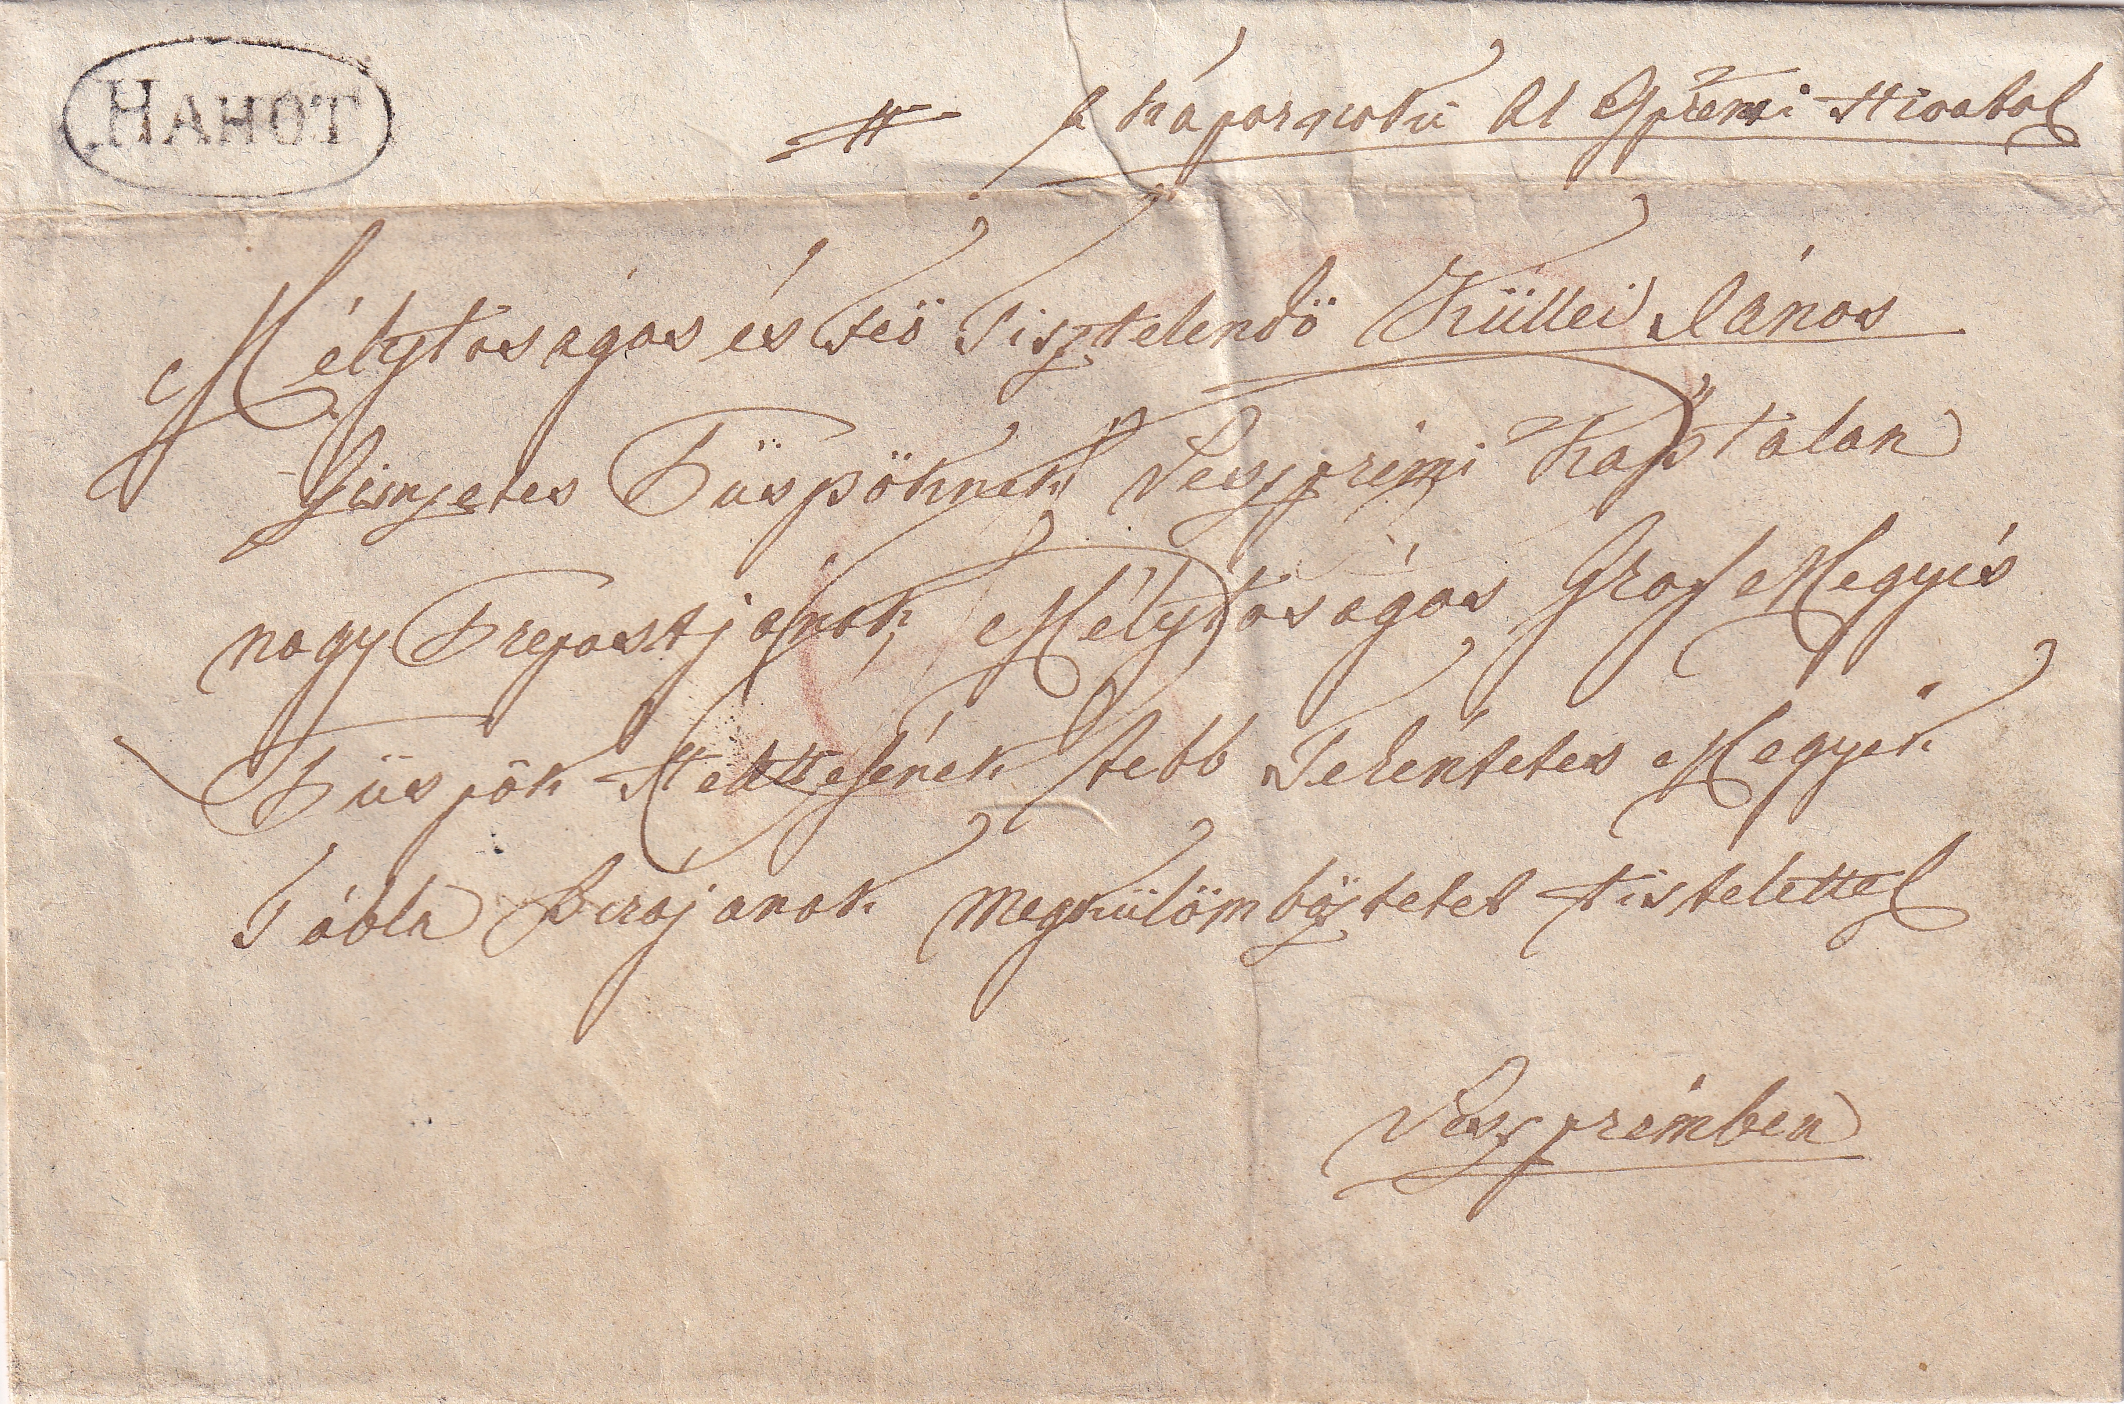 HAHÓT
A káparnoki Al Esperesi Hivatal
Mélytosagos és Feö Tisztelendö Küllei János
Címzetes Püspöknek Veszprémi Káptalan
nagy Prepostjának, Mélytoságos Gróf Megyés
Püspök Hellettessének több Tekéntetes Megyék
Tábla Birájanak megkülömböztetet tistelettel
Veszprémben